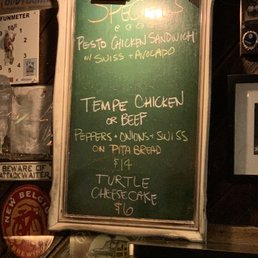 SPECIALS
PESTO CHICKEN SANDWICH
w/ SWISS + AVOCADO
TEMPE CHICKEN
OR BEEF
PEPPERS + ONIONS + SWISS
ON PITA BREAD
$14
TURTLE
CHEESECAKE
$6
FUNMETER
BEWARE OF
ATTACK WAITER
NEW BELGIUM
BREWING